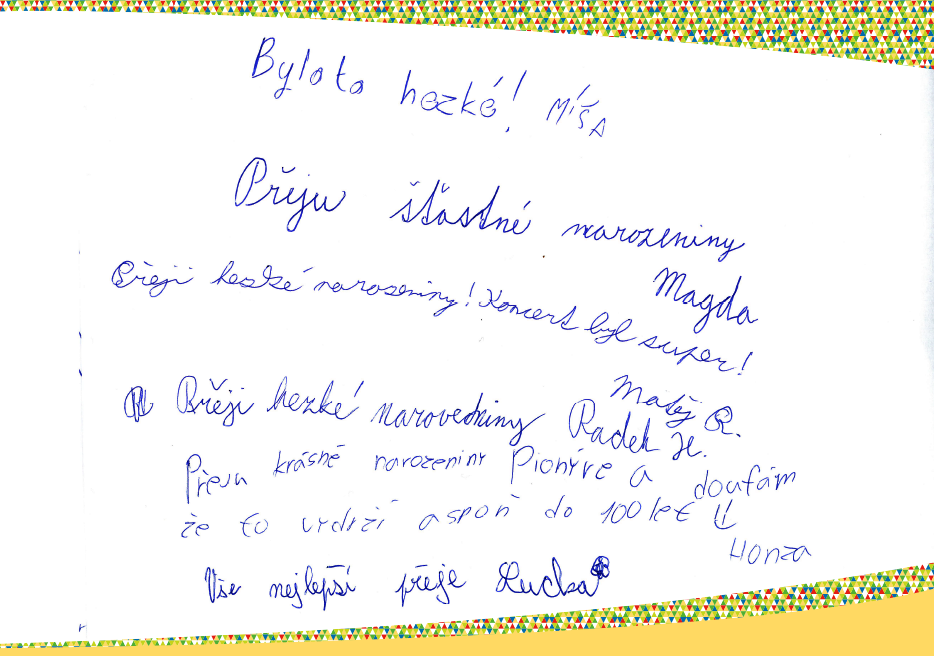 Bylo to hezké! MÍŠA
Přeju šťastné narozeniny
Magda
Přeji hezké narozeniny! Koncert byl super!
Matěj R.
Přeji hezké narovedniny Radek Je.
Přeju krásné narozeniny Pionýre a doufám
že to vydrží aspoň do 100 let
Honza
Vše nejlepší přeje Lucka